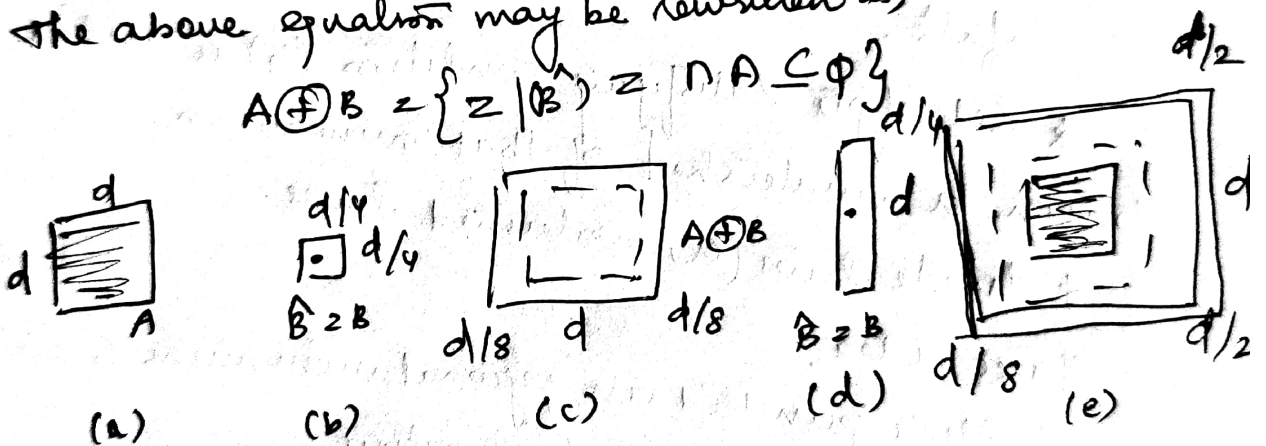 The above equation may be
A⊕B = {z | (B̂) z ∩ A ⊆ φ}
d/2
d/4
d
d
A
d/4
d/4
B̂ = B
A⊕B
d/8 d d/8
d
B̂ = B
d
d/8
d/2
(a) (b) (c) (d) (e)